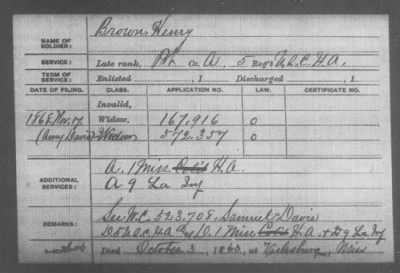 NAME OF SOLDIER: Brown Henry
SERVICE: Late rank, Pvt Co. A, 5 Reg't U.S.C.H.A.
TERM OF SERVICE: Enlisted , 1 Discharged , 1
DATE OF FILING. CLASS. APPLICATION NO. LAW. CERTIFICATE NO.
Invalid,
1868. Nov. 17. Widow, 167,916 0
(Amy Davis) Widow 572.357 0
ADDITIONAL SERVICES: A. 1 Miss Col'd H.A.
A 9 La Inf
REMARKS: See W.C. 523,708, Samuel Davis
D 5 U.S.C.H.A. D. 1 Miss Col'd H.A. + D 9 La Inf
Died October 3, 1863, at Vicksburg, Miss